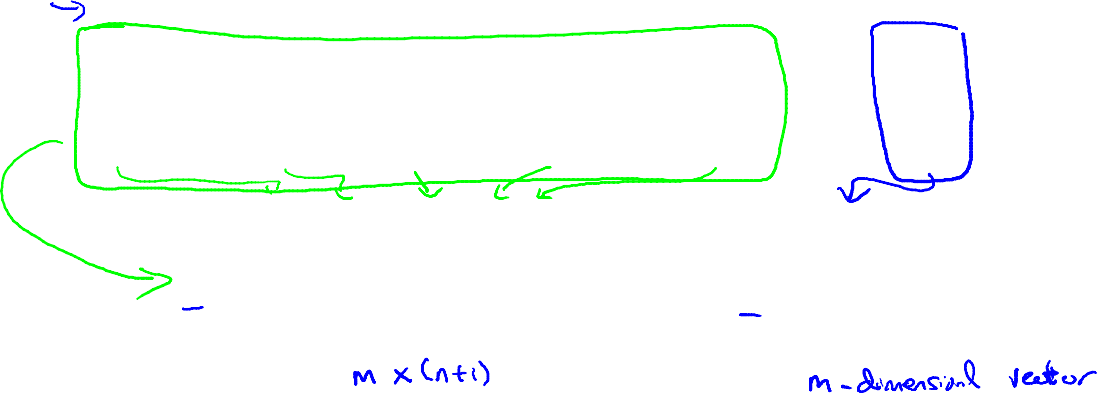 m x (n+1)
m-dimensional vector